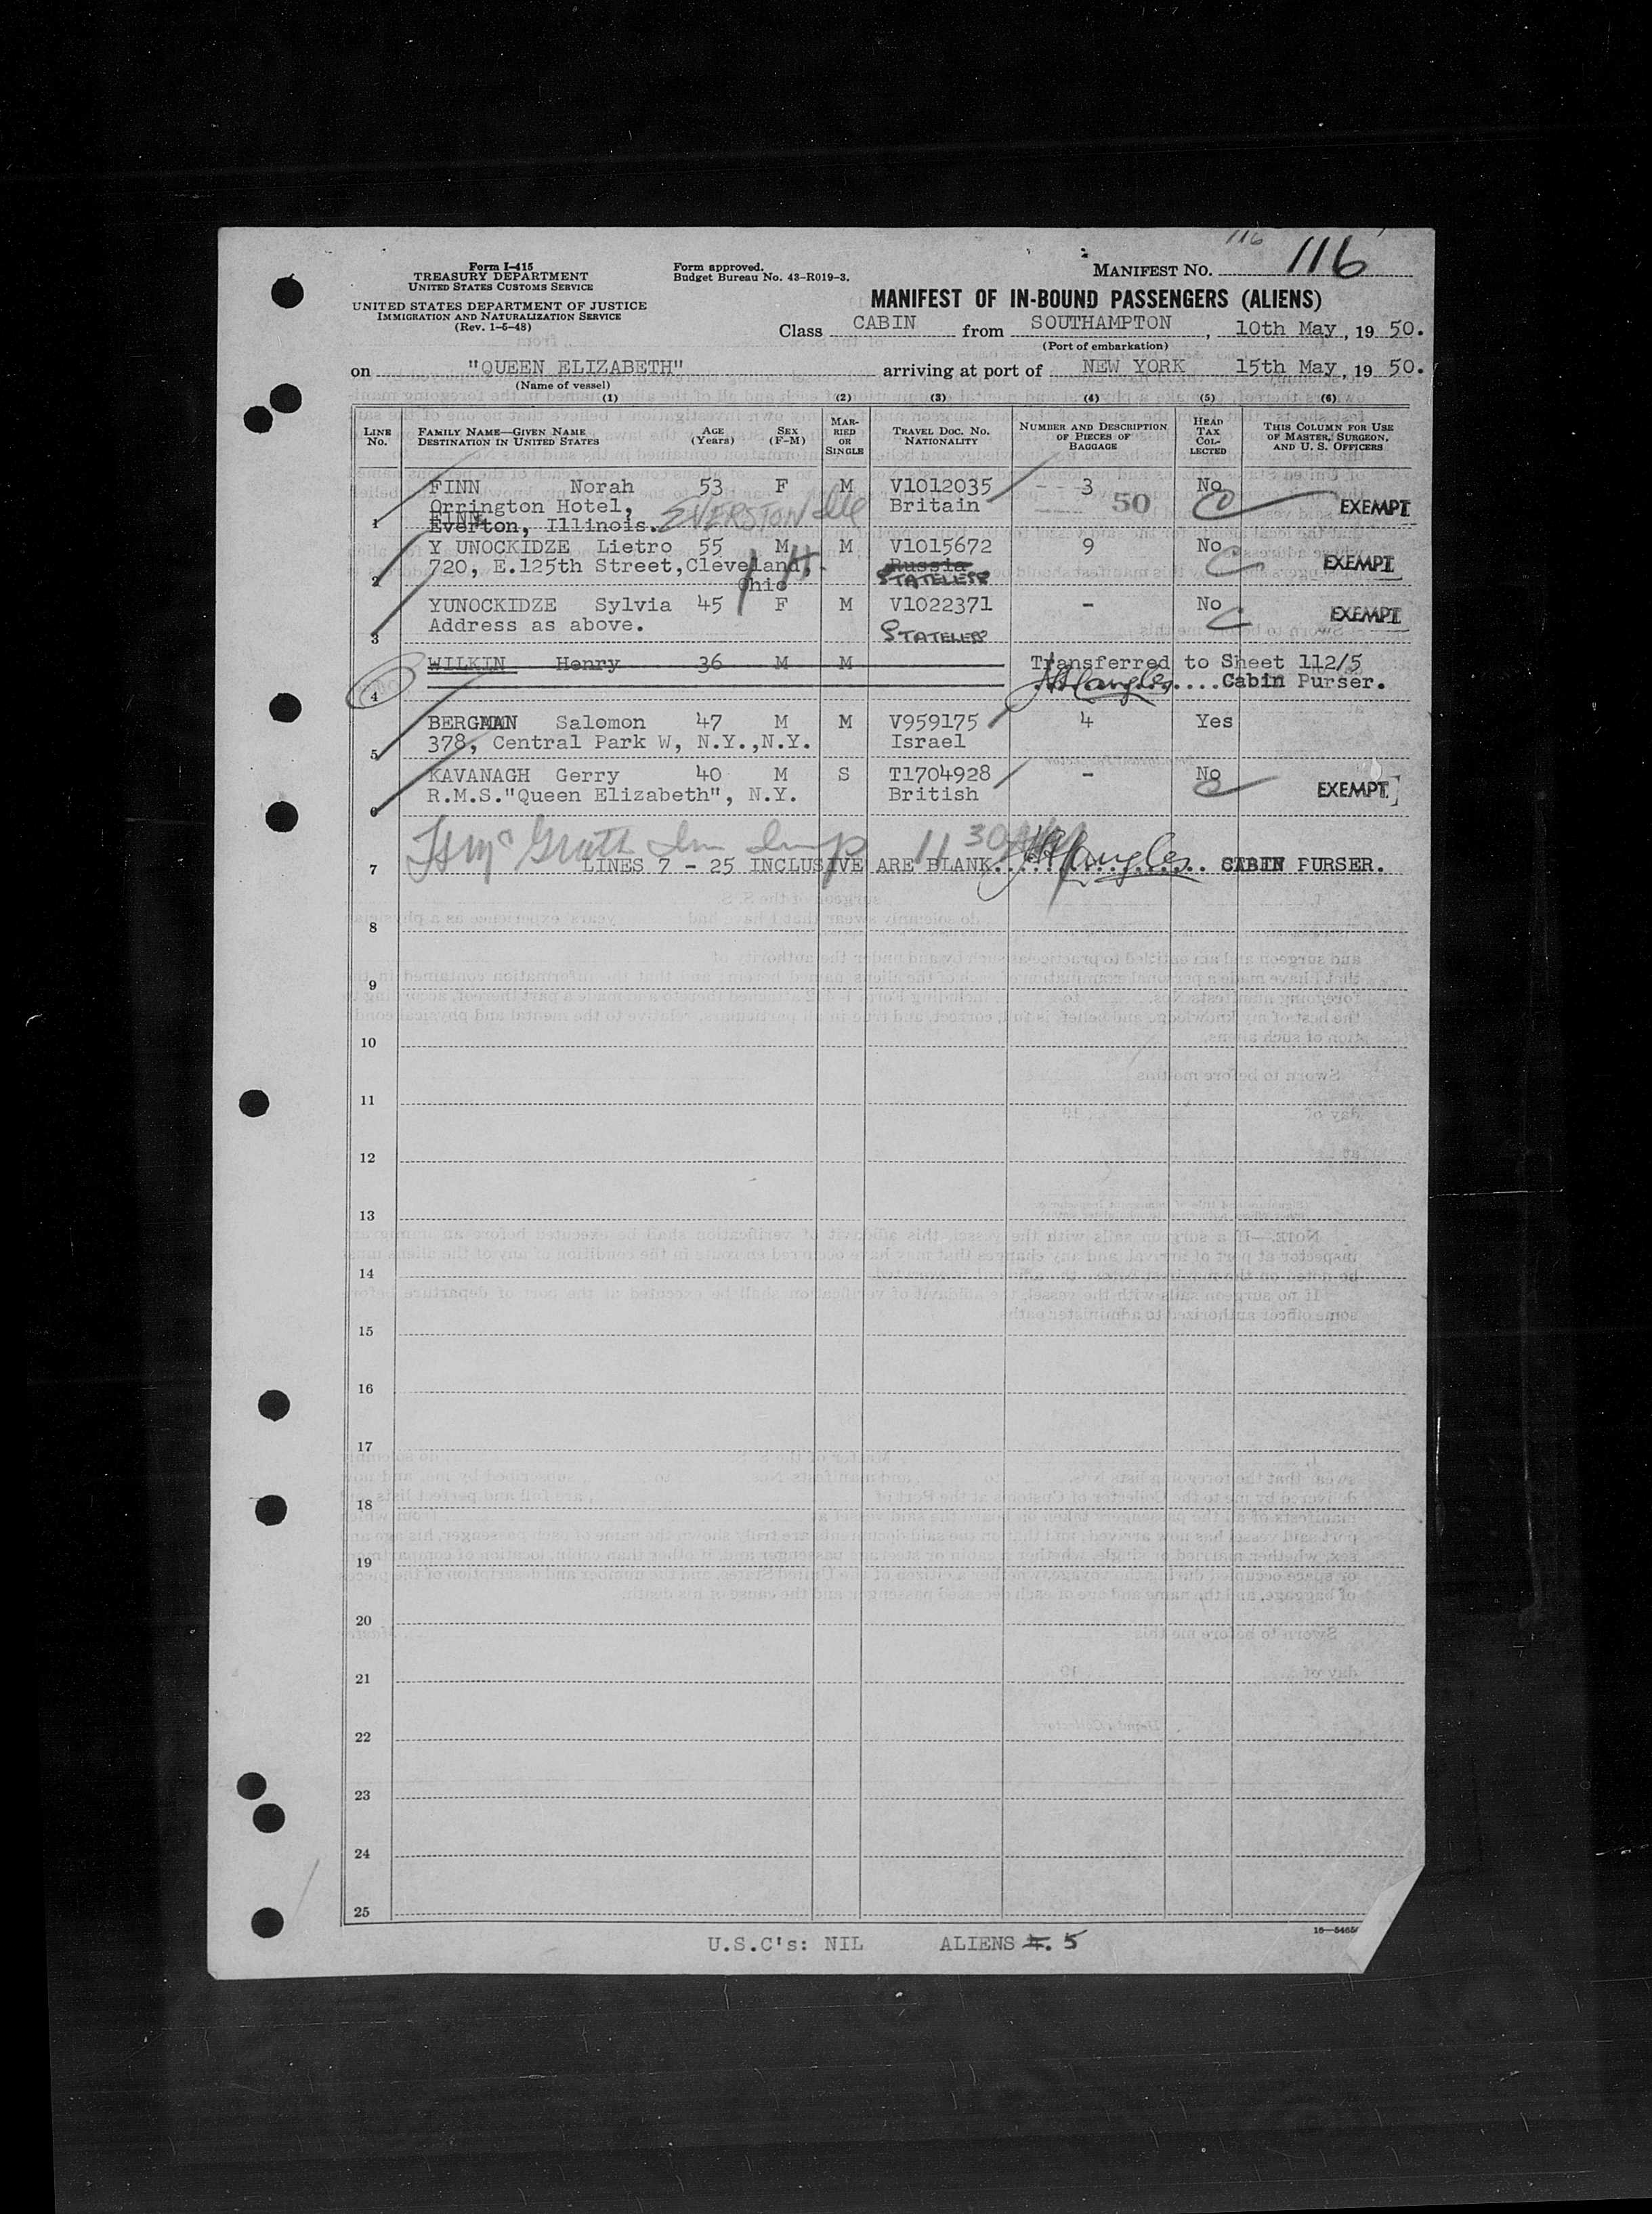 116
Form I-415
TREASURY DEPARTMENT
UNITED STATES CUSTOMS SERVICE
Form approved.
Budget Bureau No. 43-R019-3.
MANIFEST NO. 116
UNITED STATES DEPARTMENT OF JUSTICE
IMMIGRATION AND NATURALIZATION SERVICE
(Rev. 1-5-48)
MANIFEST OF IN-BOUND PASSENGERS (ALIENS)
Class CABIN from SOUTHAMPTON, 10th May, 19 50.
(Port of embarkation)
on "QUEEN ELIZABETH" arriving at port of NEW YORK 15th May, 19 50.
(Name of vessel)
(1) (2) (3) (4) (5) (6)
LINE No. FAMILY NAME—GIVEN NAME DESTINATION IN UNITED STATES AGE (Years) SEX (F-M) MARRIED OR SINGLE TRAVEL DOC. NO. NATIONALITY NUMBER AND DESCRIPTION OF PIECES OF BAGGAGE HEAD TAX COLLECTED THIS COLUMN FOR USE OF MASTER, SURGEON, AND U. S. OFFICERS
FINN Norah 53 F M V1012035 3 No
Orrington Hotel, Britain 50 EXEMPT
1 Everton, Illinois. EVERSTON Ille
Y UNOCKIDZE Lietro 55 M M V1015672 9 No
2 720, E.125th Street, Cleveland, Russia EXEMPT
Ohio STATELESS
YUNOCKIDZE Sylvia 45 F M V1022371 - No EXEMPT
3 Address as above. STATELESS
WILKIN Henry 36 M M Transferred to Sheet 112/5
4 ....Cabin Purser.
BERGMAN Salomon 47 M M V959175 4 Yes
5 378, Central Park W, N.Y.,N.Y. Israel
KAVANAGH Gerry 40 M S T1704928 - No
6 R.M.S."Queen Elizabeth", N.Y. British EXEMPT
McGrath 11 30
7 LINES 7 - 25 INCLUSIVE ARE BLANK. CABIN PURSER.
8
9
10
11
12
13
14
15
16
17
18
19
20
21
22
23
24
25
U.S.C's: NIL ALIENS 4. 5